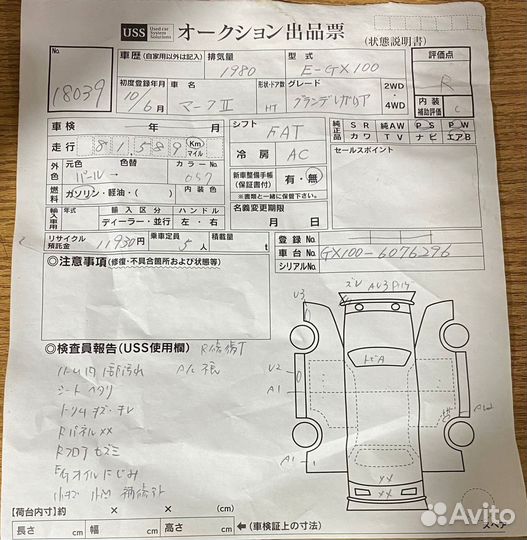 USS Used car System Solutions オークション出品票
(状態説明書)
No.
18039
車歴(自家用以外は記入)
排気量
1980
型式
E-GX100
評価点
R
初度登録年月
10年6月
車名
マークⅡ
形状・ドア数
HT
グレード
グランデレガリア
2WD・4WD
内装補助評価
C
車検 年 月
走行 81589 Km マイル
シフト
FAT
純正品
SR 純AW PS PW
カワ TV ナビ エアB
冷房
AC
セールスポイント
外色
元色 色替 カラーNo.
パール→ 057
新車整備手帳(保証書) 有・無
※書類と一緒に保管。
燃料
ガソリン・軽油・( )
内装色
輸入車用
年式 輸入区分 ハンドル
ディーラー・並行 左・右
名義変更期限
月 日
リサイクル預託金
11930円
乗車定員
5人
積載量
t
登録No.
車台No. GX100-6076296
シリアルNo.
◎注意事項(修復・不具合箇所および状態等)
◎検査員報告(USS使用欄)
シートヘタリ
RパネルXX
Egオイルにじみ
U3
U2
A1
A1
XX
【荷台内寸】約 × × (cm)
長さ cm 幅 cm 高さ cm
←(車検証上の寸法)
スペア
Avito